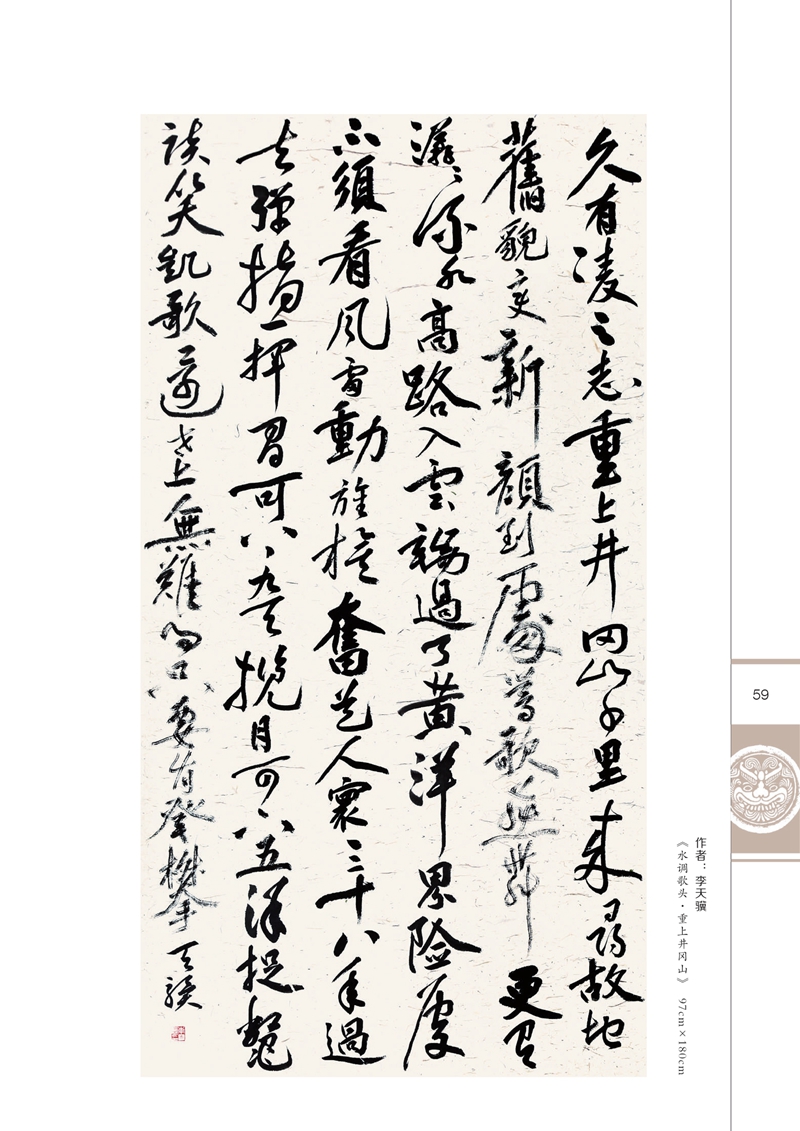 久有凌云志重上井冈山千里来尋故地
舊貌变新顔到處莺歌燕舞更有
潺潺流水高路入雲端過了黄洋界险處
不須看风雷動旌旗奮是人寰三十八年過
去彈指一揮间可上九天揽月可下五洋捉鱉
談笑凯歌還世上無難事只要肯登攀 天骥
作者：李天骥
《水调歌头·重上井冈山》 97cm×180cm
59